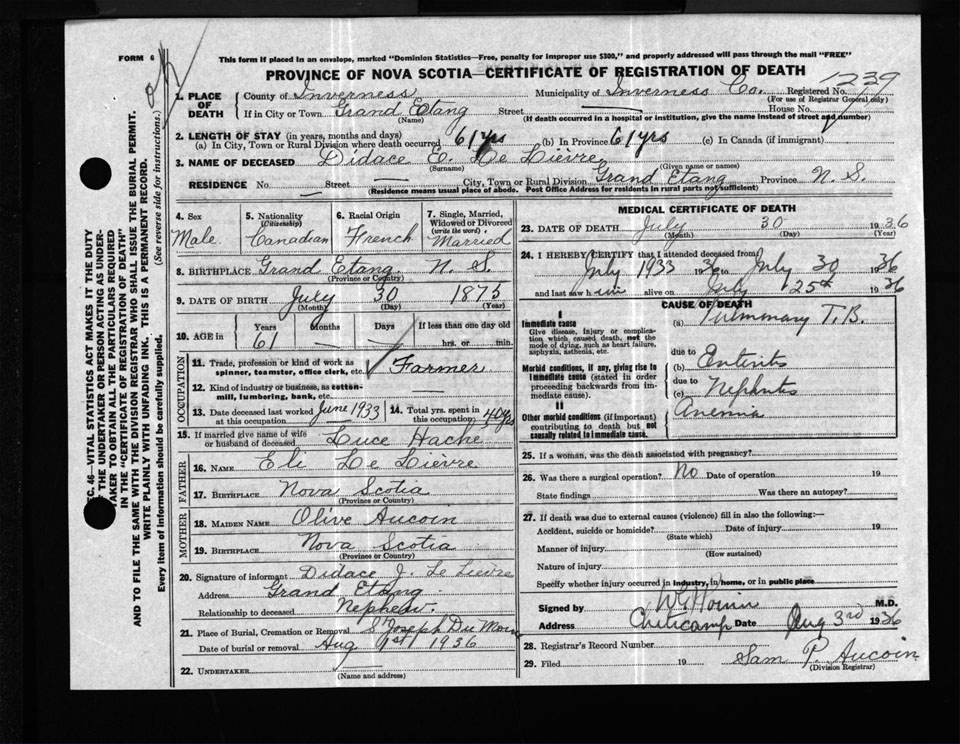 FORM 6
This form if placed in an envelope, marked "Dominion Statistics—Free, penalty for improper use $300," and properly addressed will pass through the mail "FREE"
PROVINCE OF NOVA SCOTIA—CERTIFICATE OF REGISTRATION OF DEATH
1239
1. PLACE OF DEATH
County of Inverness Municipality of Inverness Co. Registered No.
(For use of Registrar General only)
If in City or Town Grand Etang Street — House No.
(Name) (If death occurred in a hospital or institution, give the name instead of street and number)
2. LENGTH OF STAY (in years, months and days)
(a) In City, Town or Rural Division where death occurred 61 yrs (b) In Province 61 yrs (c) In Canada (if immigrant)
3. NAME OF DECEASED Didace E. Le Lièvre
(Surname) (Given name or names)
RESIDENCE No — Street — City, Town or Rural Division Grand Etang Province N. S.
(Residence means usual place of abode. Post Office Address for residents in rural parts not sufficient)
4. Sex
Male
5. Nationality
(Citizenship)
Canadian
6. Racial Origin
French
7. Single, Married, Widowed or Divorced
(write the word)
Married
8. BIRTHPLACE Grand Etang N. S.
(Province or Country)
9. DATE OF BIRTH July 30 1875
(Month) (Day) (Year)
10. AGE in
Years Months Days If less than one day old
61 — — hrs. or min.
OCCUPATION
11. Trade, profession or kind of work as spinner, teamster, office clerk, etc. Farmer
12. Kind of industry or business, as cotton-mill, lumbering, bank, etc.
13. Date deceased last worked at this occupation June 1933
14. Total yrs. spent in this occupation 40 yrs
15. If married give name of wife or husband of deceased Luce Hache
FATHER
16. NAME Eli Le Lièvre
17. BIRTHPLACE Nova Scotia
(Province or Country)
MOTHER
18. MAIDEN NAME Olive Aucoin
19. BIRTHPLACE Nova Scotia
(Province or Country)
20. Signature of informant Didace J. Le Lievre
Address Grand Etang
Relationship to deceased Nephew.
21. Place of Burial, Cremation or Removal St Joseph Du Moine
Date of burial or removal Aug 1st 1936
22. UNDERTAKER
(Name and address)
MEDICAL CERTIFICATE OF DEATH
23. DATE OF DEATH July 30 1936
(Month) (Day) (Year)
24. I HEREBY CERTIFY that I attended deceased from
July 1933 to July 30 1936
and last saw him alive on July 25th 1936
CAUSE OF DEATH
I
Immediate cause
Give disease, injury or complication which caused death, not the mode of dying, such as heart failure, asphyxia, asthenia, etc.
(a) Pulmonary T.B.
due to
Morbid conditions, if any, giving rise to immediate cause (stated in order proceeding backwards from immediate cause).
(b) Enteritis
due to
(c) Nephritis
II
Other morbid conditions (if important) contributing to death but not causally related to immediate cause.
Anemia
25. If a woman, was the death associated with pregnancy?
26. Was there a surgical operation? No Date of operation 19
State findings Was there an autopsy?
27. If death was due to external causes (violence) fill in also the following:—
Accident, suicide or homicide? Date of injury 19
(State which)
Manner of injury
(How sustained)
Nature of injury
Specify whether injury occurred in industry, in home, or in public place
Signed by M.D.
Address Cheticamp Date Aug 3rd 1936
28. Registrar's Record Number
29. Filed 19 Sam P. Aucoin
(Division Registrar)
SEC. 46—VITAL STATISTICS ACT MAKES IT THE DUTY
OF THE UNDERTAKER OR PERSON ACTING AS UNDER-
TAKER TO OBTAIN ALL THE PARTICULARS REQUIRED
IN THE "CERTIFICATE OF REGISTRATION OF DEATH"
AND TO FILE THE SAME WITH THE DIVISION REGISTRAR WHO SHALL ISSUE THE BURIAL PERMIT.
WRITE PLAINLY WITH UNFADING INK. THIS IS A PERMANENT RECORD.
Every item of information should be carefully supplied. (See reverse side for instructions.)